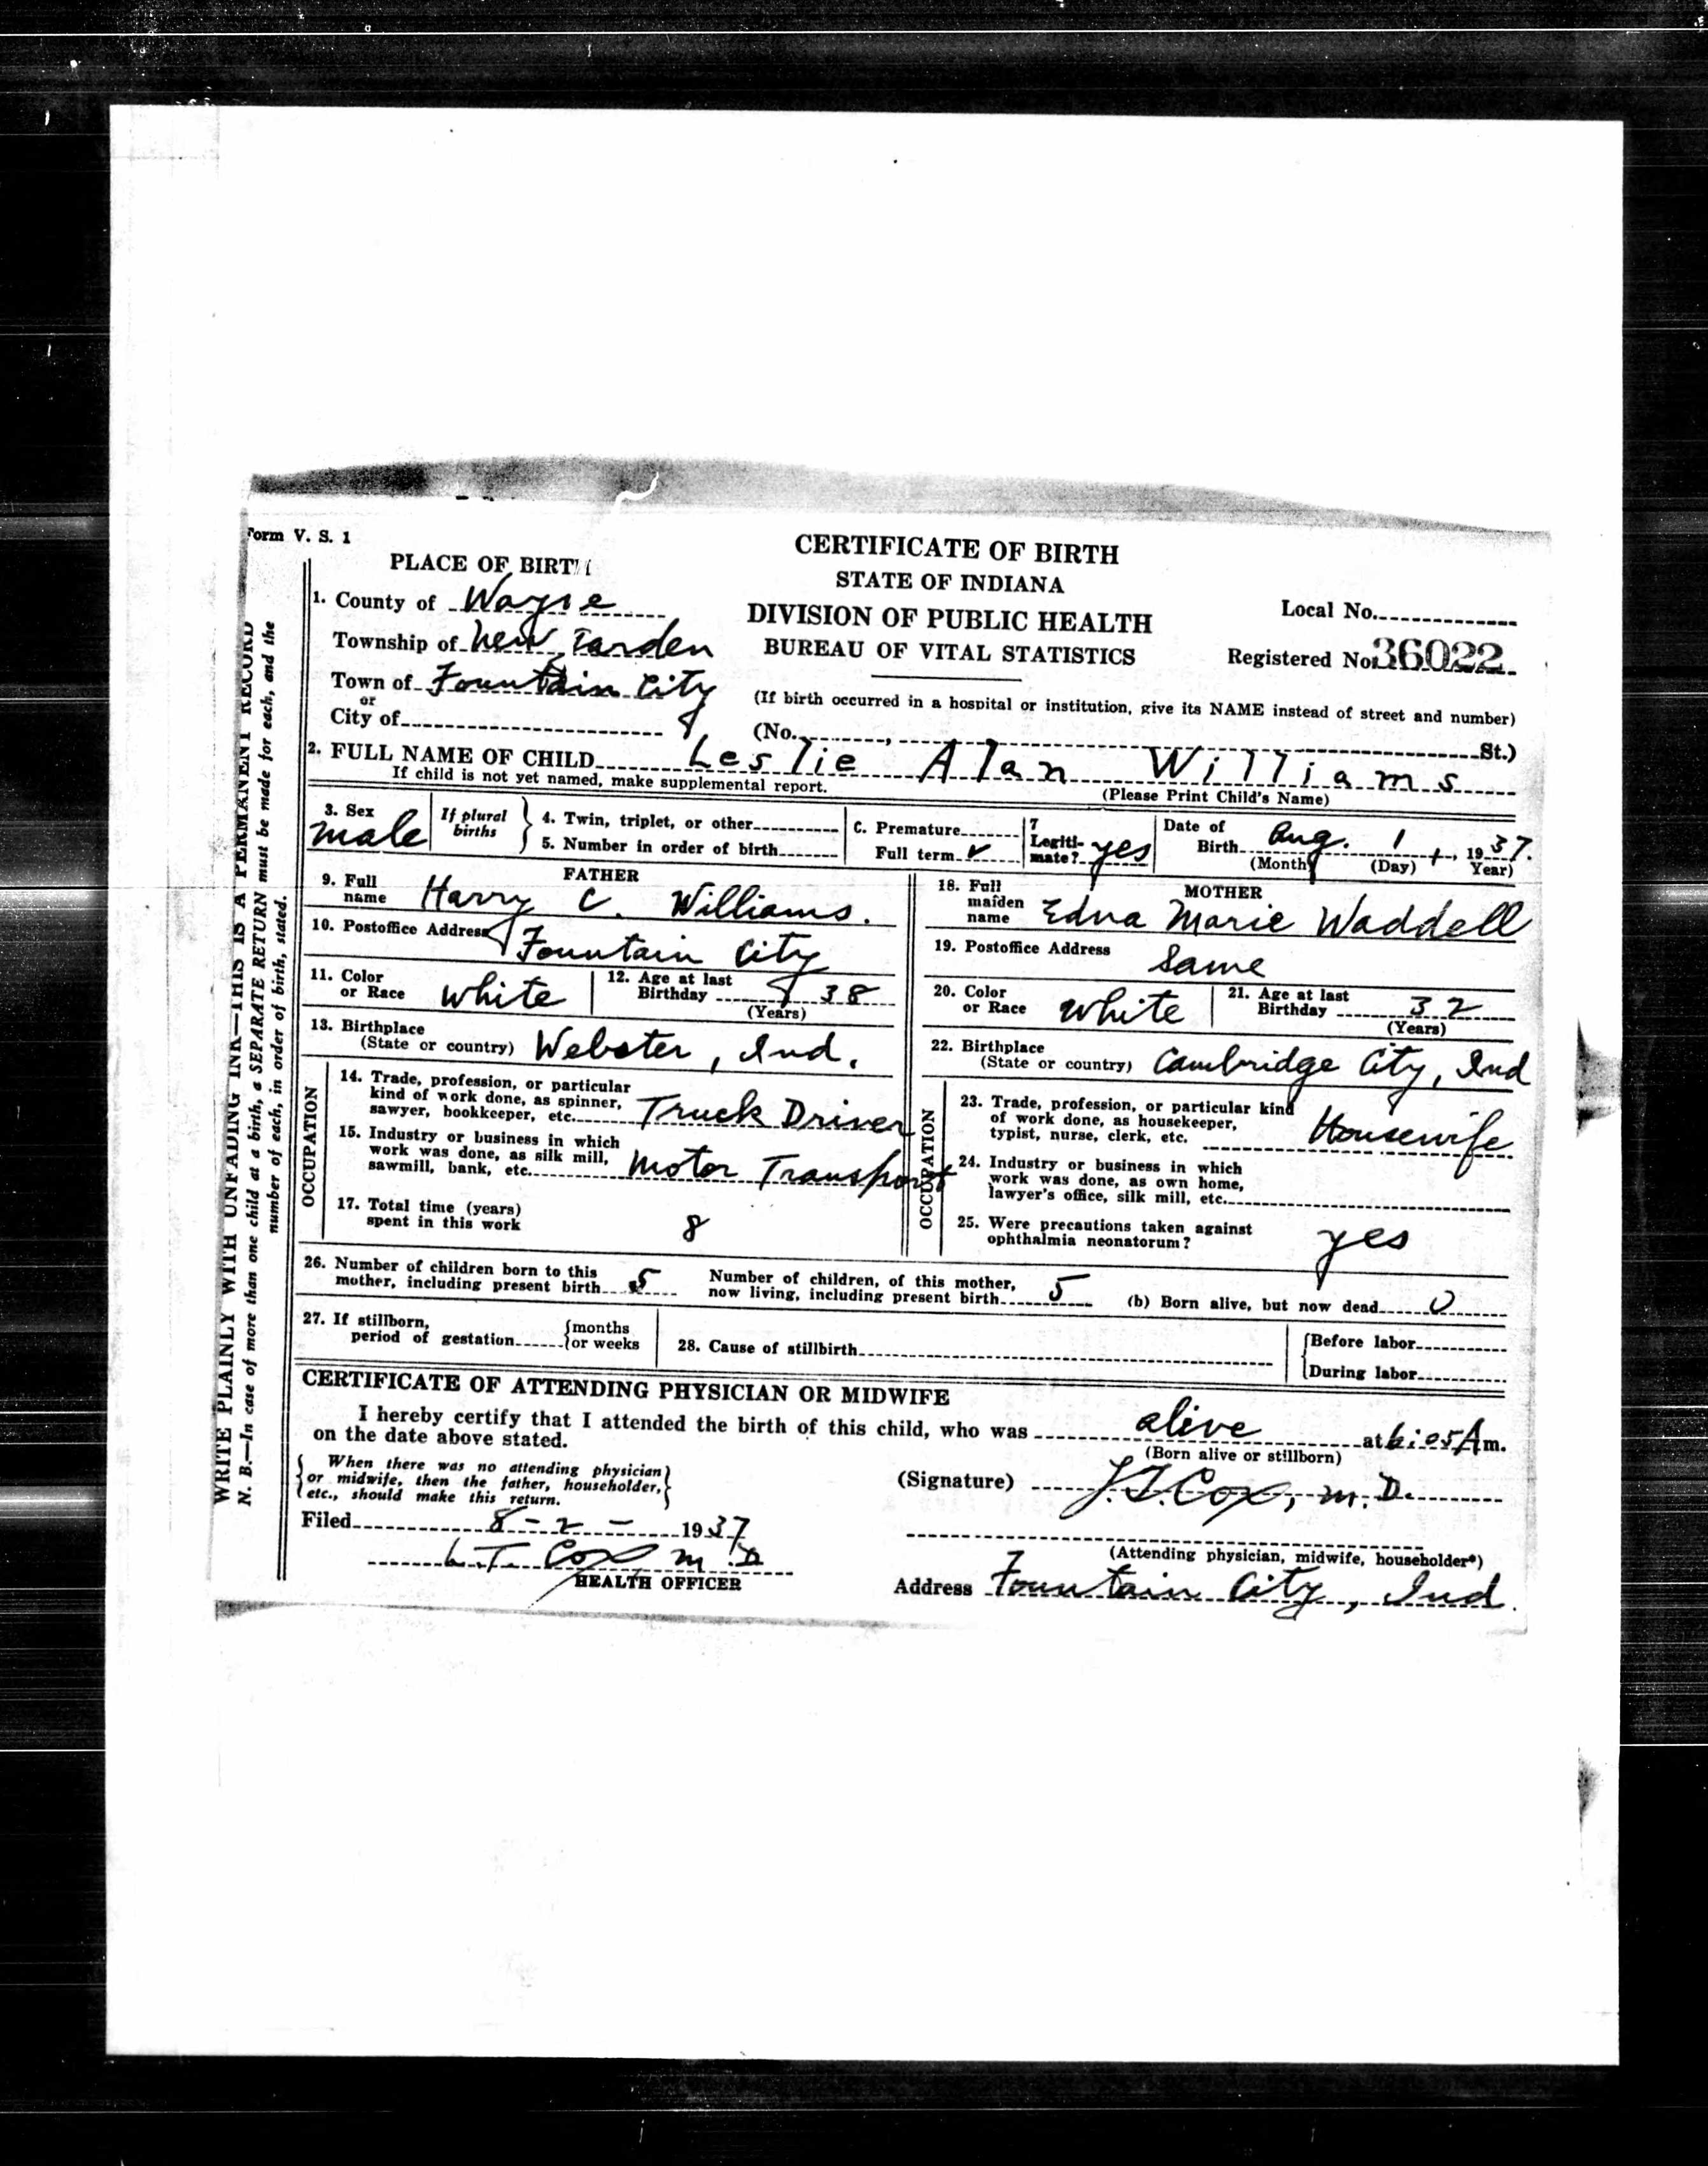 Form V. S. 1
PLACE OF BIRTH
1. County of Wayne
Township of New Garden
Town of Fountain City
or
City of
CERTIFICATE OF BIRTH
STATE OF INDIANA
DIVISION OF PUBLIC HEALTH
BUREAU OF VITAL STATISTICS
Local No.
Registered No 36022
(If birth occurred in a hospital or institution, give its NAME instead of street and number)
(No. , St.)
2. FULL NAME OF CHILD Leslie Alan Williams
If child is not yet named, make supplemental report.
(Please Print Child's Name)
3. Sex male
If plural births
4. Twin, triplet, or other
5. Number in order of birth
C. Premature
Full term ✓
7 Legiti-
mate? yes
Date of
Birth Aug. 1, 1937.
(Month) (Day) Year)
FATHER
9. Full
name Harry C. Williams.
10. Postoffice Address Fountain City
11. Color
or Race White
12. Age at last
Birthday 38
(Years)
13. Birthplace
(State or country) Webster, Ind.
OCCUPATION
14. Trade, profession, or particular
kind of work done, as spinner,
sawyer, bookkeeper, etc. Truck Driver
15. Industry or business in which
work was done, as silk mill,
sawmill, bank, etc. Motor Transport
17. Total time (years)
spent in this work 8
MOTHER
18. Full
maiden
name Edna Marie Waddell
19. Postoffice Address Same
20. Color
or Race White
21. Age at last
Birthday 32
(Years)
22. Birthplace
(State or country) Cambridge City, Ind
OCCUPATION
23. Trade, profession, or particular kind
of work done, as housekeeper,
typist, nurse, clerk, etc. Housewife
24. Industry or business in which
work was done, as own home,
lawyer's office, silk mill, etc.
25. Were precautions taken against
ophthalmia neonatorum? yes
26. Number of children born to this
mother, including present birth 5
Number of children, of this mother,
now living, including present birth 5
(b) Born alive, but now dead 0
27. If stillborn,
period of gestation {months
{or weeks
28. Cause of stillbirth
{Before labor
{During labor
CERTIFICATE OF ATTENDING PHYSICIAN OR MIDWIFE
I hereby certify that I attended the birth of this child, who was alive at 6:05 A m.
on the date above stated.
(Born alive or stillborn)
{When there was no attending physician}
{or midwife, then the father, householder,}
{etc., should make this return.}
(Signature) L.T. Cox, M.D.
Filed 8-2- 1937
L.T. Cox M.D
HEALTH OFFICER
(Attending physician, midwife, householder*)
Address Fountain City, Ind.
WRITE PLAINLY WITH UNFADING INK—THIS IS A PERMANENT RECORD
N. B.—In case of more than one child at a birth, a SEPARATE RETURN must be made for each, and the
number of each, in order of birth, stated.